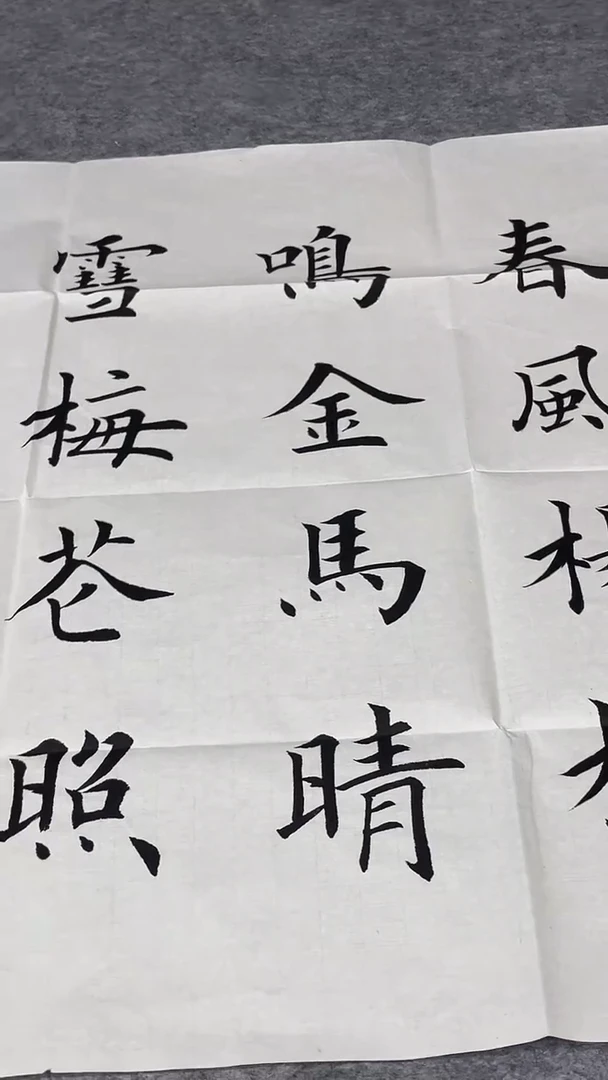 春風
鳴金馬晴
雪梅花照